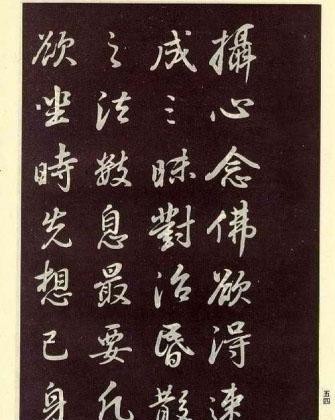 攝心念佛欲得速
成三昧對治昏散
之法數息最要凡
欲坐時先想己身
五四